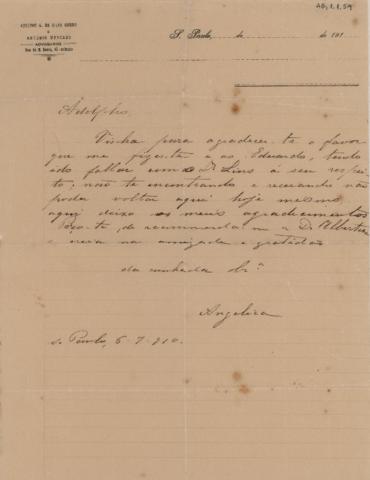 AG.1.1.59
ADOLPHO A. DA SILVA GORDO
E
ANTONIO MERCADO
ADVOGADOS
S. Paulo, de de 191
Adolpho,
Vinha para agradecer-te o favor
que me fizeste e ao Eduardo, tendo
ido fallar com o Dr. Lins a seu respei-
to; não te encontrando e receiando não
poder voltar aqui hoje mesmo
aqui deixo os meus agradecimentos
Peço-te, de recommendar-me a D. Albertina
e creia na amizade e gratidão
da cunhada Obr.ª
Angelica
S. Paulo, 6-7-910.